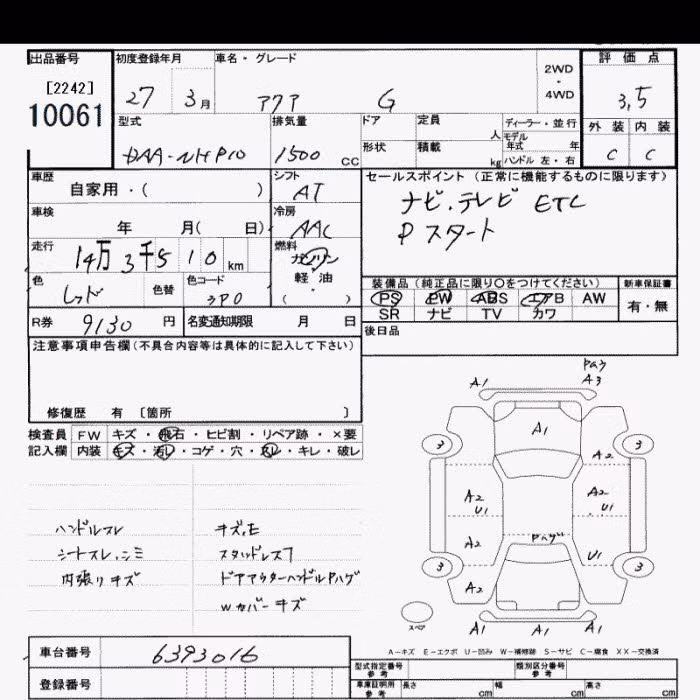 出品番号 初度登録年月 車名・グレード 評価点
[2242] 2WD・4WD
10061 27 3月 アクア G 3,5
型式 排気量 ドア 定員 人 ディーラー・並行 外装 内装
DAA-NHP10 1500 CC 形状 積載 kg モデル年式 年 ハンドル 左・右 C C
車歴 シフト セールスポイント(正常に機能するものに限ります)
自家用・( ) AT ナビ・テレビ ETC
車検 冷房 Pスタート
年 月( 日) AAC
走行 燃料
14万3千510km ガソリン
軽・油
( )
色 色替 色コード 装備品(純正品に限り〇をつけてください) 新車保証書
レッド 3P0 PS PW ABS エアB AW 有・無
SR ナビ TV カワ
R券 9130円 名変通知期限 月 日 後日品
注意事項申告欄(不具合内容等は具体的に記入して下さい)
修復歴 有 〔箇所 〕
検査員 FW キズ・飛石・ヒビ割・リペア跡・×要
記入欄 内装 キズ・汚レ・コゲ・穴・スレ・キレ・破レ
ハンドルスレ キズ,E
シートスレ,シミ スタッドレス7
内張りキズ ドアアウターハンドルPハゲ
Wカバーキズ
A1 A3
A1
3 3
A2
A2 A2
U1 U1
Pハゲ
A2 U1
3 3
A2
スペア A1 A1 A1
A-キズ E-エクボ U-凹み W-補修跡 S-サビ C-腐食 XX-交換済
車台番号 6393016 型式指定番号 参考 類別区分番号 参考
登録番号 車庫証明用 参考 長さ cm 幅 cm 高さ cm